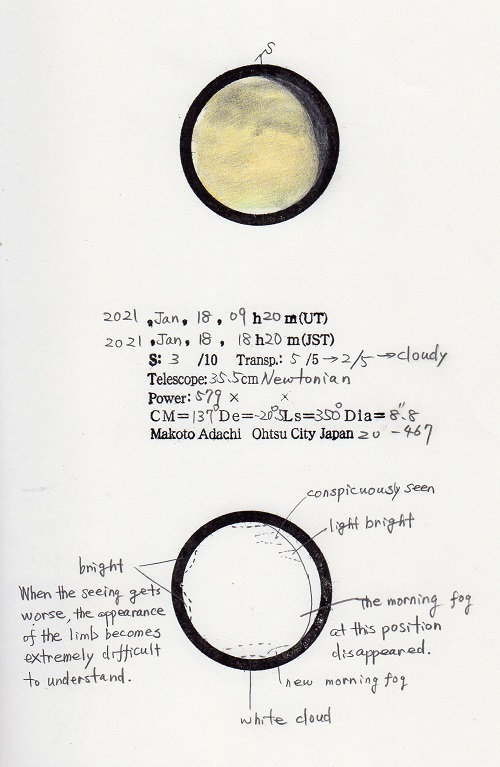 S
2021 , Jan, 18, 09 h20 m(UT)
2021 , Jan, 18, 18 h20 m(JST)
S: 3 /10 Transp.: 5 /5 → 2/5 → cloudy
Telescope: 35.5cm Newtonian
Power: 579 × ×
CM=137° De=-20.5 Ls=350° Dia= 8".8
Makoto Adachi Ohtsu City Japan 20 -467
conspicuously seen
light bright
bright
When the seeing gets
worse, the appearance
of the limb becomes
extremely difficult
to understand.
the morning fog
at this position
disappeared.
new morning fog
white cloud